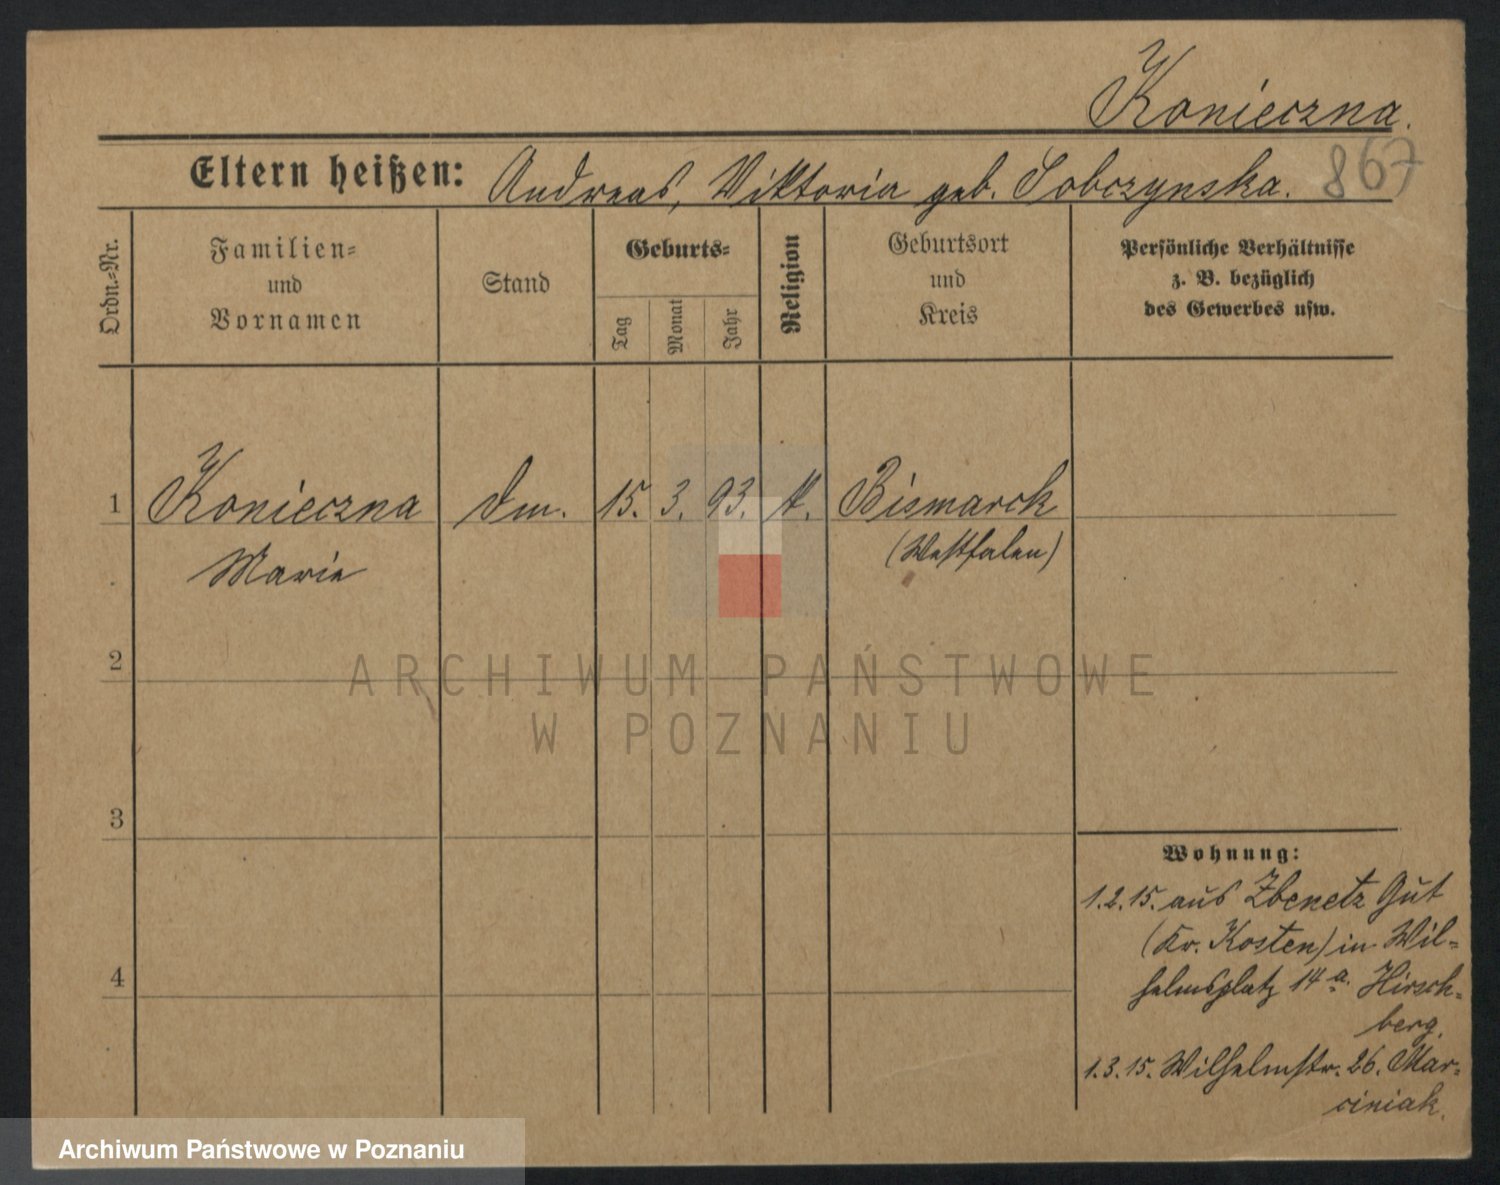 Konieczna.
Eltern heißen: Andreas, Viktoria geb. Sobczynska. 867
Ordn.-Nr.
Familien-
und
Vornamen
Stand
Geburts-
Tag
Monat
Jahr
Religion
Geburtsort
und
Kreis
Persönliche Verhältnisse
z. B. bezüglich
des Gewerbes usw.
1 Konieczna dm. 15. 3. 93. k. Bismarck
Marie (Westfalen)
2
ARCHIWUM PAŃSTWOWE
W POZNANIU
3
Wohnung:
1.2.15. aus Zbenetz Gut
(Kr. Kosten) in Wil-
helmsplatz 14a. Hirsch-
berg.
4
1.3.15. Wilhelmstr. 26. Mar-
ciniak.
Archiwum Państwowe w Poznaniu